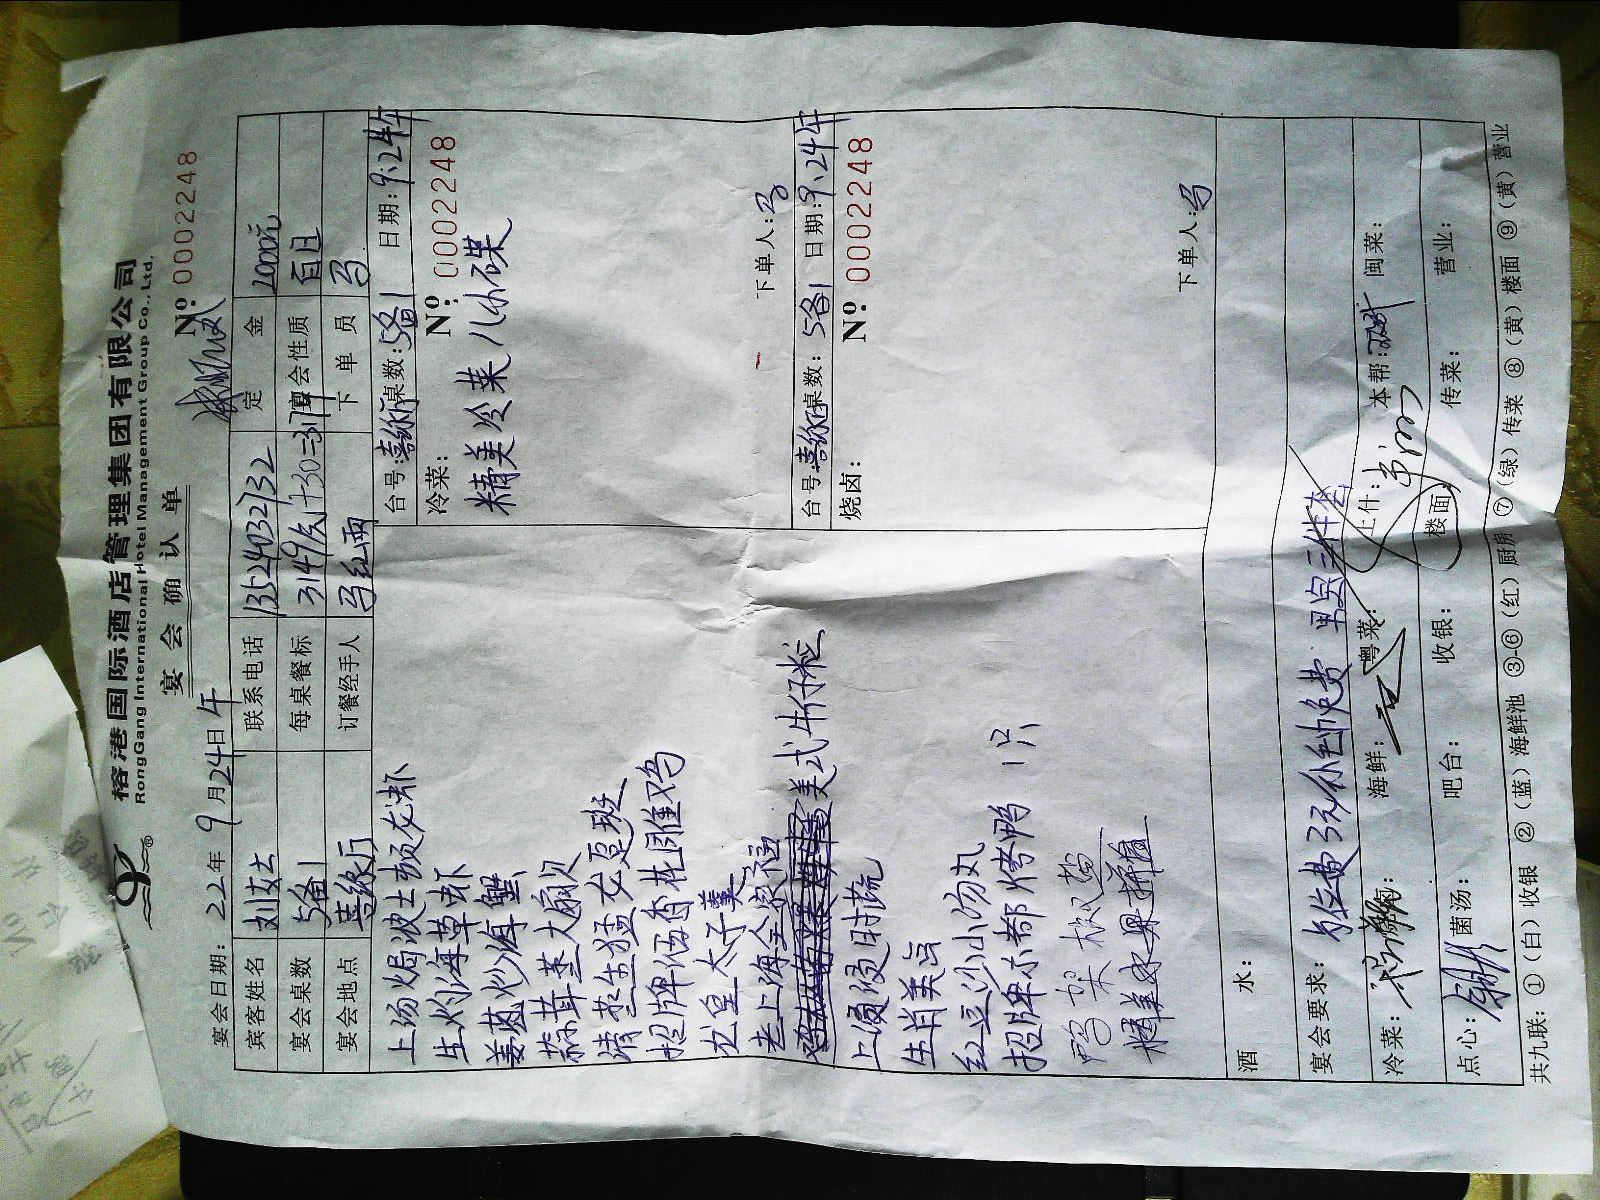 榕港国际酒店管理集团有限公司
RongGang International Hotel Management Group Co., Ltd.
宴会确认单
Nº: 0002248
宴会日期: 22年 9月24日 午
宾客姓名 刘女士 联系电话 13524032132 定金 2000元
宴会桌数 5备1 每桌餐标 3149 宴会性质 百日
宴会地点 喜缘厅 订餐经手人 马红雨 下单员 马
上汤焗波士顿龙虾
生灼海草虾
姜葱炒海蟹
蒜茸蒸大扇贝
清蒸生猛龙趸斑
招牌伍香花雕鸡
龙皇太子羹
老上海全家福
美式牛仔粒
上汤浸时蔬
生肖美点
红豆沙小汤丸
招牌京都烤鸭 1只
鸭架椒盐
精美水果拼盘
台号: 喜缘厅 桌数: 5备1 日期: 9.24午
冷菜: Nº: 0002248
精美冷菜八小碟
下单人: 马
台号: 喜缘厅 桌数: 5备1 日期: 9.24午
烧卤: Nº: 0002248
下单人: 马
酒水:
宴会要求: 免费
冷菜: 海鲜: 粤菜: 上什: 本帮: 闽菜:
点心: 菌汤: 吧台: 收银: 楼面: 传菜: 营业:
共九联: ①(白)收银 ②(蓝)海鲜池 ③-⑥(红)厨房 ⑦(绿)传菜 ⑧(黄)楼面 ⑨(黄)营业